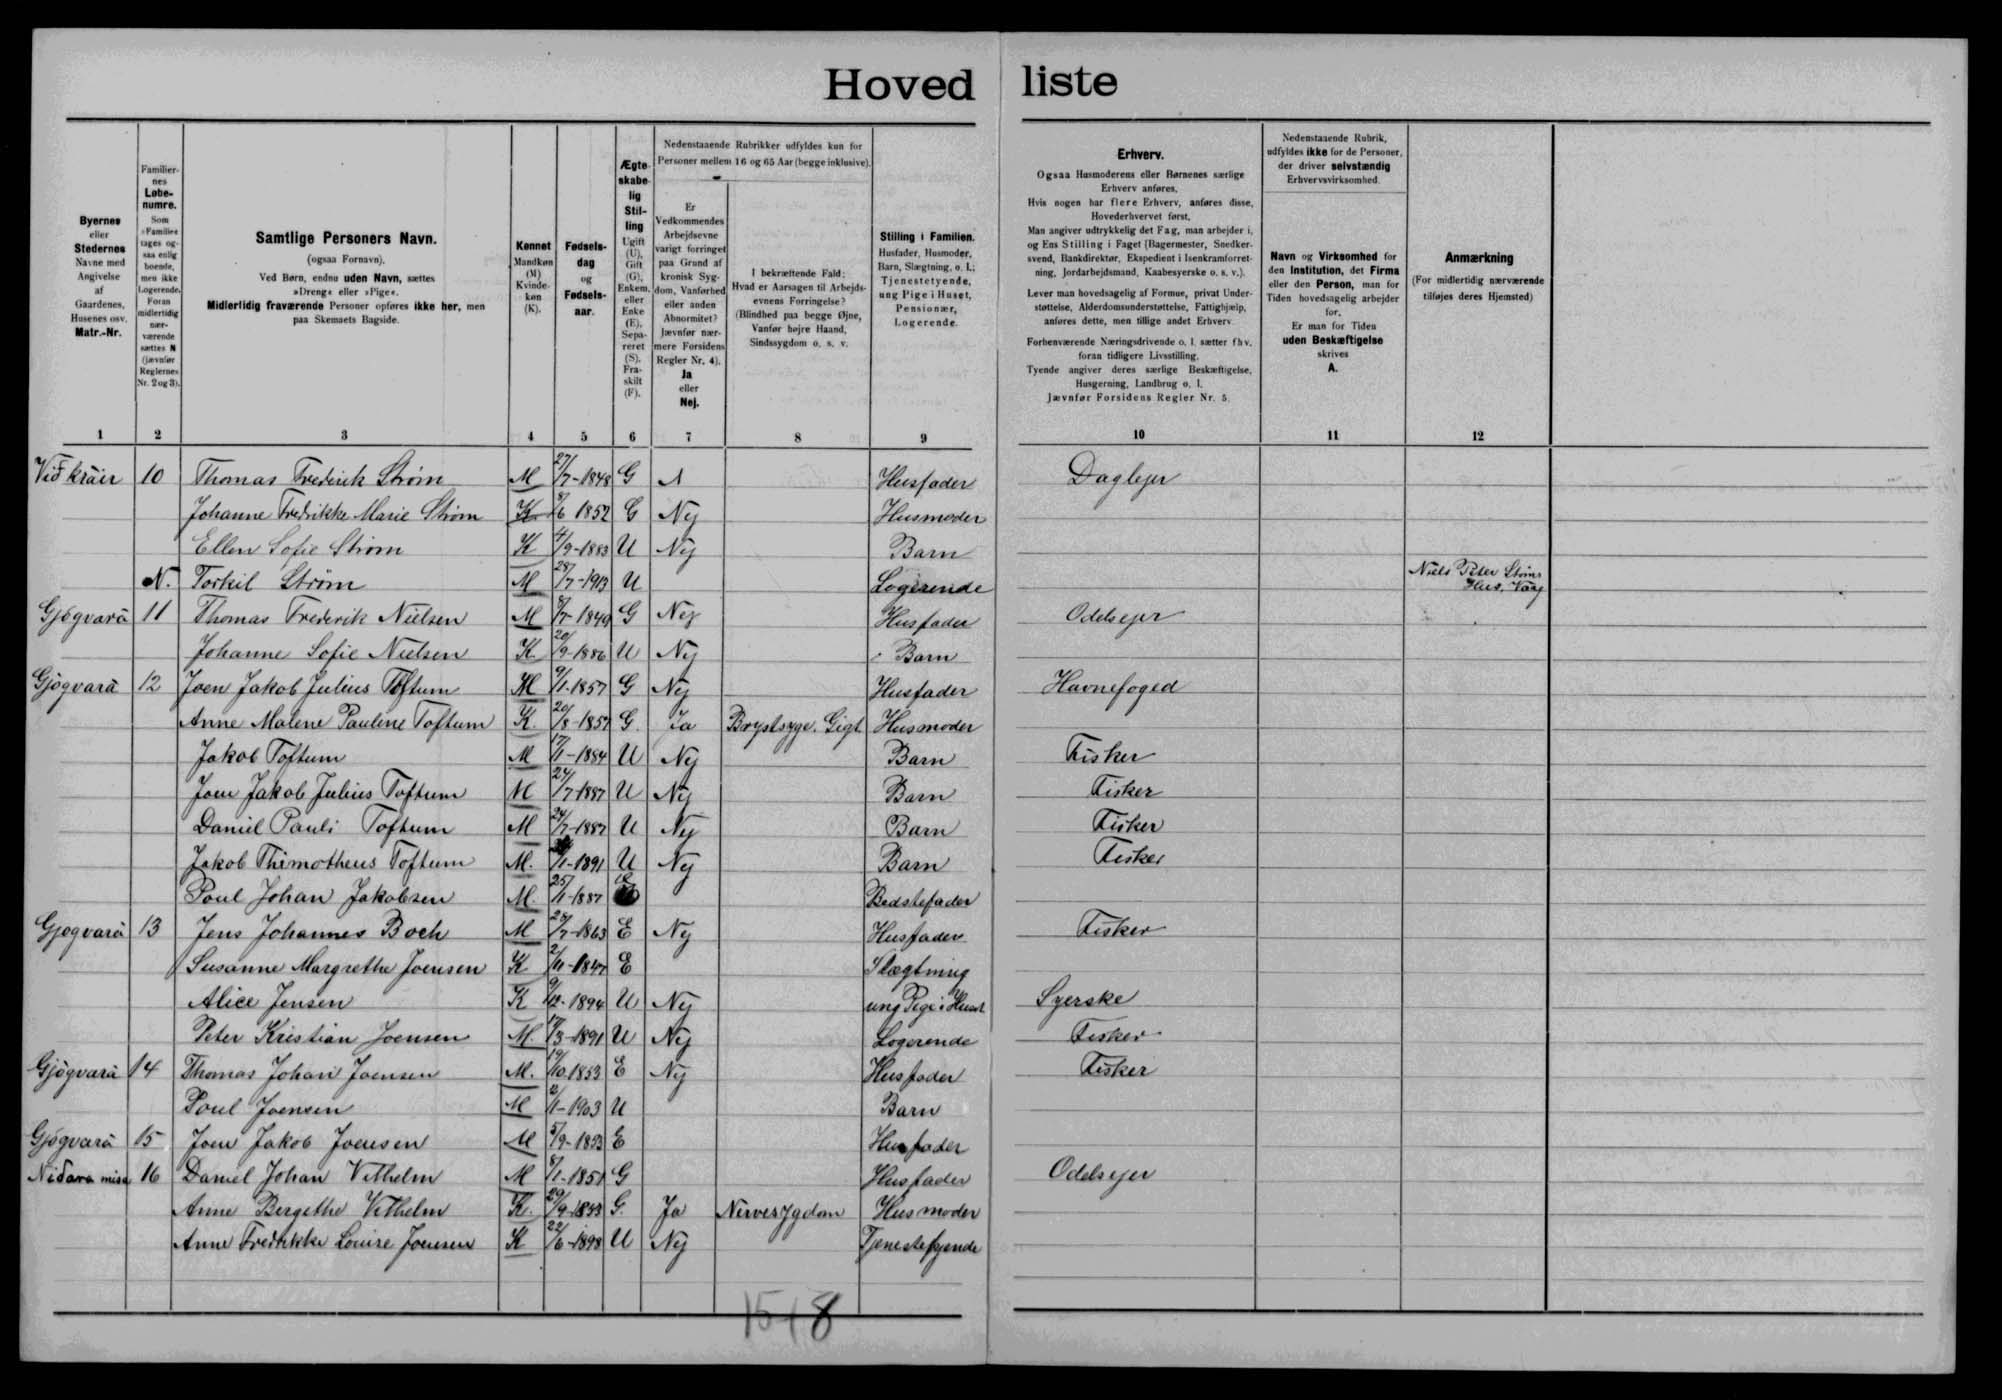 Hoved liste
Byernes eller Stedernes Navne med Angivelse af Gaardenes, Husenes osv. Matr.-Nr.
Familiernes Løbenumre. Som »Familie« tages ogsaa enlig boende, men ikke Logerende. Foran midlertidig nærværende sættes N (jævnfør Reglernes Nr. 2 og 3).
Samtlige Personers Navn. (ogsaa Fornavn). Ved Børn, endnu uden Navn, sættes »Dreng« eller »Pige«. Midlertidig fraværende Personer opføres ikke her, men paa Skemaets Bagside.
Kønnet Mandkøn (M) Kvindekøn (K).
Fødselsdag og Fødselsaar.
Ægteskabelig Stilling Ugift (U), Gift (G), Enkem. eller Enke (E), Separeret (S). Fraskilt (F).
Nedenstaaende Rubrikker udfyldes kun for Personer mellem 16 og 65 Aar (begge inklusive).
Er Vedkommendes Arbejdsevne varigt forringet paa Grund af kronisk Sygdom, Vanførhed eller anden Abnormitet? Jævnfør nærmere Forsidens Regler Nr. 4). Ja eller Nej.
I bekræftende Fald: Hvad er Aarsagen til Arbejdsevnens Forringelse? (Blindhed paa begge Øjne, Vanfør højre Haand, Sindssygdom o. s. v.
Stilling i Familien. Husfader, Husmoder, Barn, Slægtning, o. l.; Tjenestetyende, ung Pige i Huset, Pensionær, Logerende.
Erhverv.
Ogsaa Husmoderens eller Børnenes særlige Erhverv anføres.
Hvis nogen har flere Erhverv, anføres disse, Hovederhvervet først.
Man angiver udtrykkelig det Fag, man arbejder i, og Ens Stilling i Faget (Bagermester, Snedkersvend, Bankdirektør, Ekspedient i Isenkramforretning, Jordarbejdsmand, Kaabesyerske o. s. v.).
Lever man hovedsagelig af Formue, privat Understøttelse, Alderdomsunderstøttelse, Fattighjælp, anføres dette, men tillige andet Erhverv.
Forhenværende Næringsdrivende o. l. sætter fhv. foran tidligere Livsstilling.
Tyende angiver deres særlige Beskæftigelse, Husgerning, Landbrug o. l.
Jævnfør Forsidens Regler Nr. 5.
Nedenstaaende Rubrik, udfyldes ikke for de Personer, der driver selvstændig Erhvervsvirksomhed.
Navn og Virksomhed for den Institution, det Firma eller den Person, man for Tiden hovedsagelig arbejder for. Er man for Tiden uden Beskæftigelse skrives A.
Anmærkning (For midlertidig nærværende tilføjes deres Hjemsted)
1 2 3 4 5 6 7 8 9 10 11 12
Við kráir 10 Thomas Frederik Strøm M 27/7-1848 G Husfader Daglejer
Johanne Fredrikke Marie Strøm K 8/6 1852 G Nej Husmoder
Ellen Sofie Strøm K 4/9-1883 U Nej Barn
N. Torkil Strøm M 28/7-1913 U Logerende Niels Peter Strøms Hus, Vaag
Gjógvará 11 Thomas Frederik Nielsen M 8/7-1849 G Nej Husfader Odelsejer
Johanne Sofie Nielsen K 20/9-1886 U Nej Barn
Gjógvará 12 Joen Jakob Julius Toftum M 9/1-1857 G Nej Husfader Havnefoged
Anne Malene Pauline Toftum K. 20/8-1857 G. Ja Brystsyge. Gigt Husmoder
Jakob Toftum M 17/1-1884 U Nej Barn Fisker
Joen Jakob Julius Toftum M 24/7-1887 U Nej Barn Fisker
Daniel Pauli Toftum M 24/7-1887 U Nej Barn Fisker
Jakob Thimotheus Toftum M. /1-1891 U Nej Barn Fisker
Poul Johan Jakobsen M. 25/11-1837 E Bedstefader
Gjógvará 13 Jens Johannes Bech M 27/7-1863 E Nej Husfader Fisker
Susanne Margrethe Joensen K 2/11-1847 E Slægtning
Alice Jensen K 9/12-1894 U Nej ung Pige i Huset Syerske
Peter Kristian Joensen M. 17/3-1891 U Nej Logerende Fisker
Gjógvará 14 Thomas Johan Joensen M. 19/10 1853 E Nej Husfader Fisker
Poul Joensen M 2/1-1903 U Barn
Gjógvará 15 Joen Jakob Joensen M 5/9-1833 E Husfader
Niðara 16 Daniel Johan Vilhelm M 8/1-1851 G Husfader Odelsejer
Anne Bergithe Vilhelm K. 29/9-1853 G. Ja Nervesygdom Husmoder
Anne Fredrikke Louise Joensen K 22/6-1898 U Nej Tjenestetyende
15+8